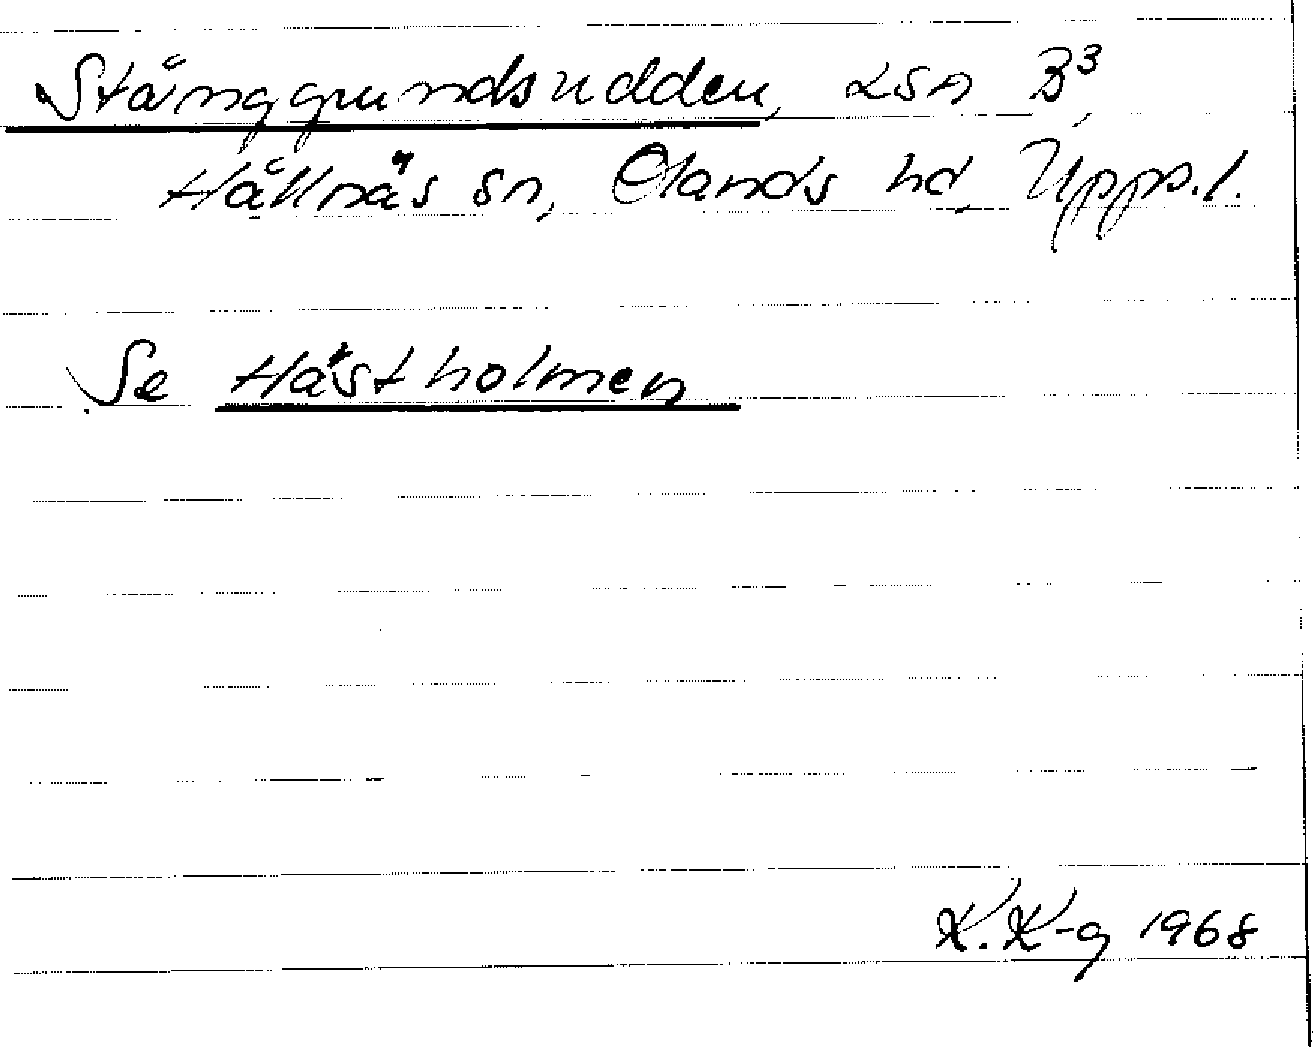 Stånggrundsudden, LSA B³
Hållnäs sn, Olands hd, Upps.l.
Se Hästholmen
K.K-g 1968